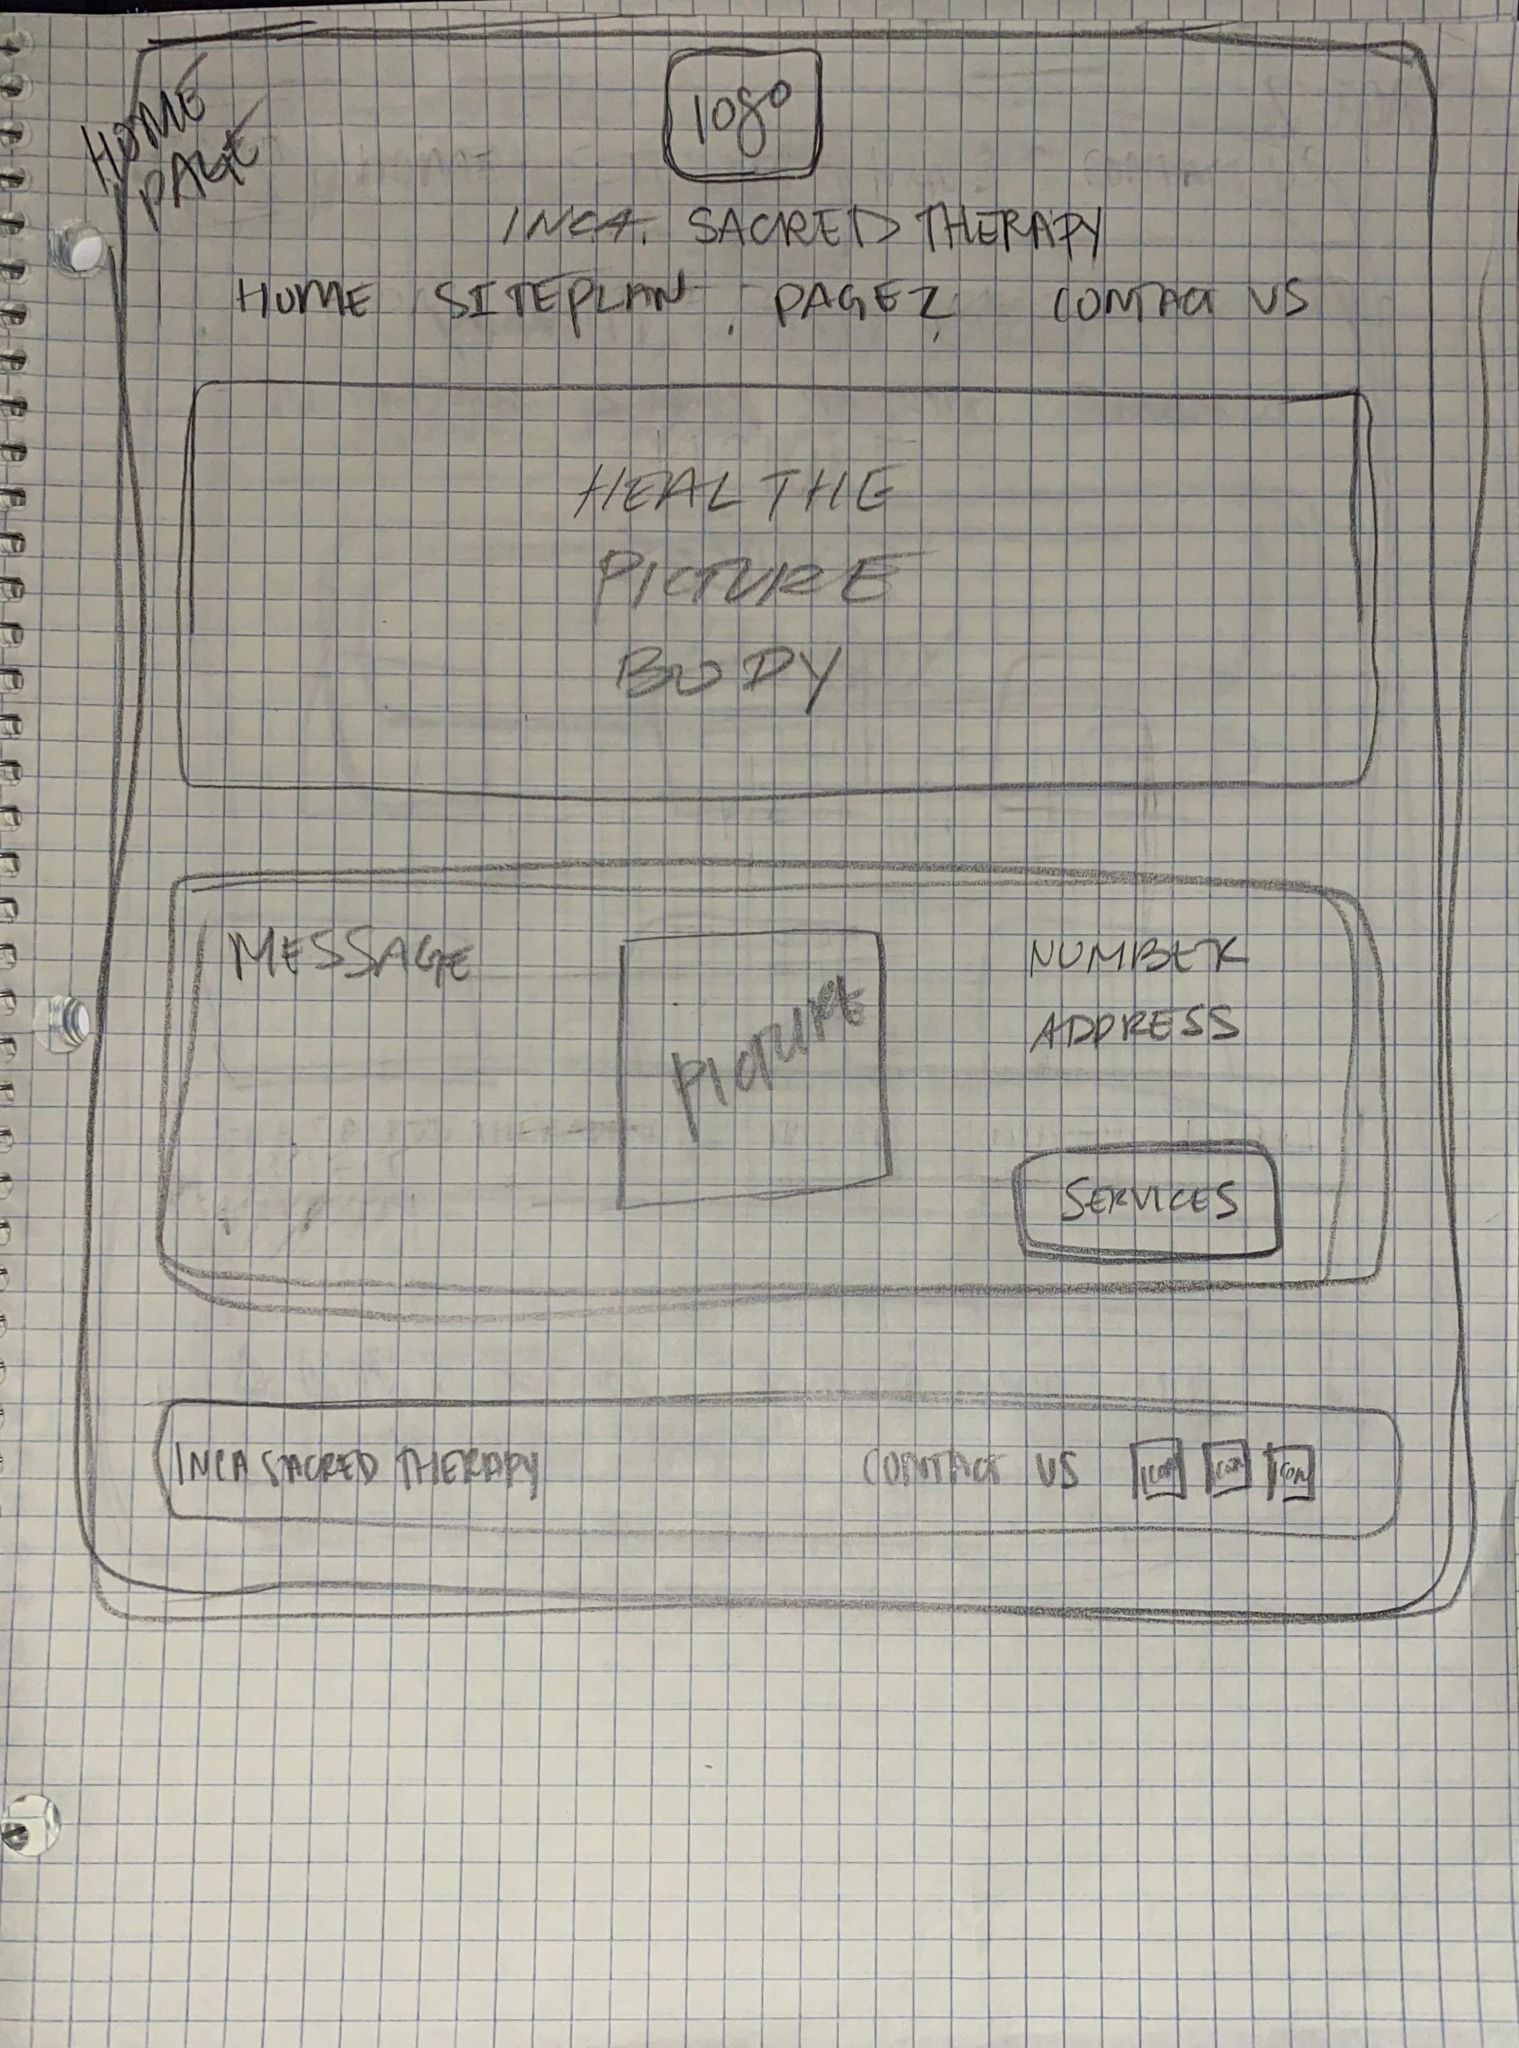 HOME
PAGE
logo
INCA. SACRED THERAPY
HOME SITEPLAN PAGE2 CONTACT US
HEAL THE
PICTURE
BODY
MESSAGE
PICTURE
NUMBER
ADDRESS
SERVICES
INCA SACRED THERAPY CONTACT US icon icon icon